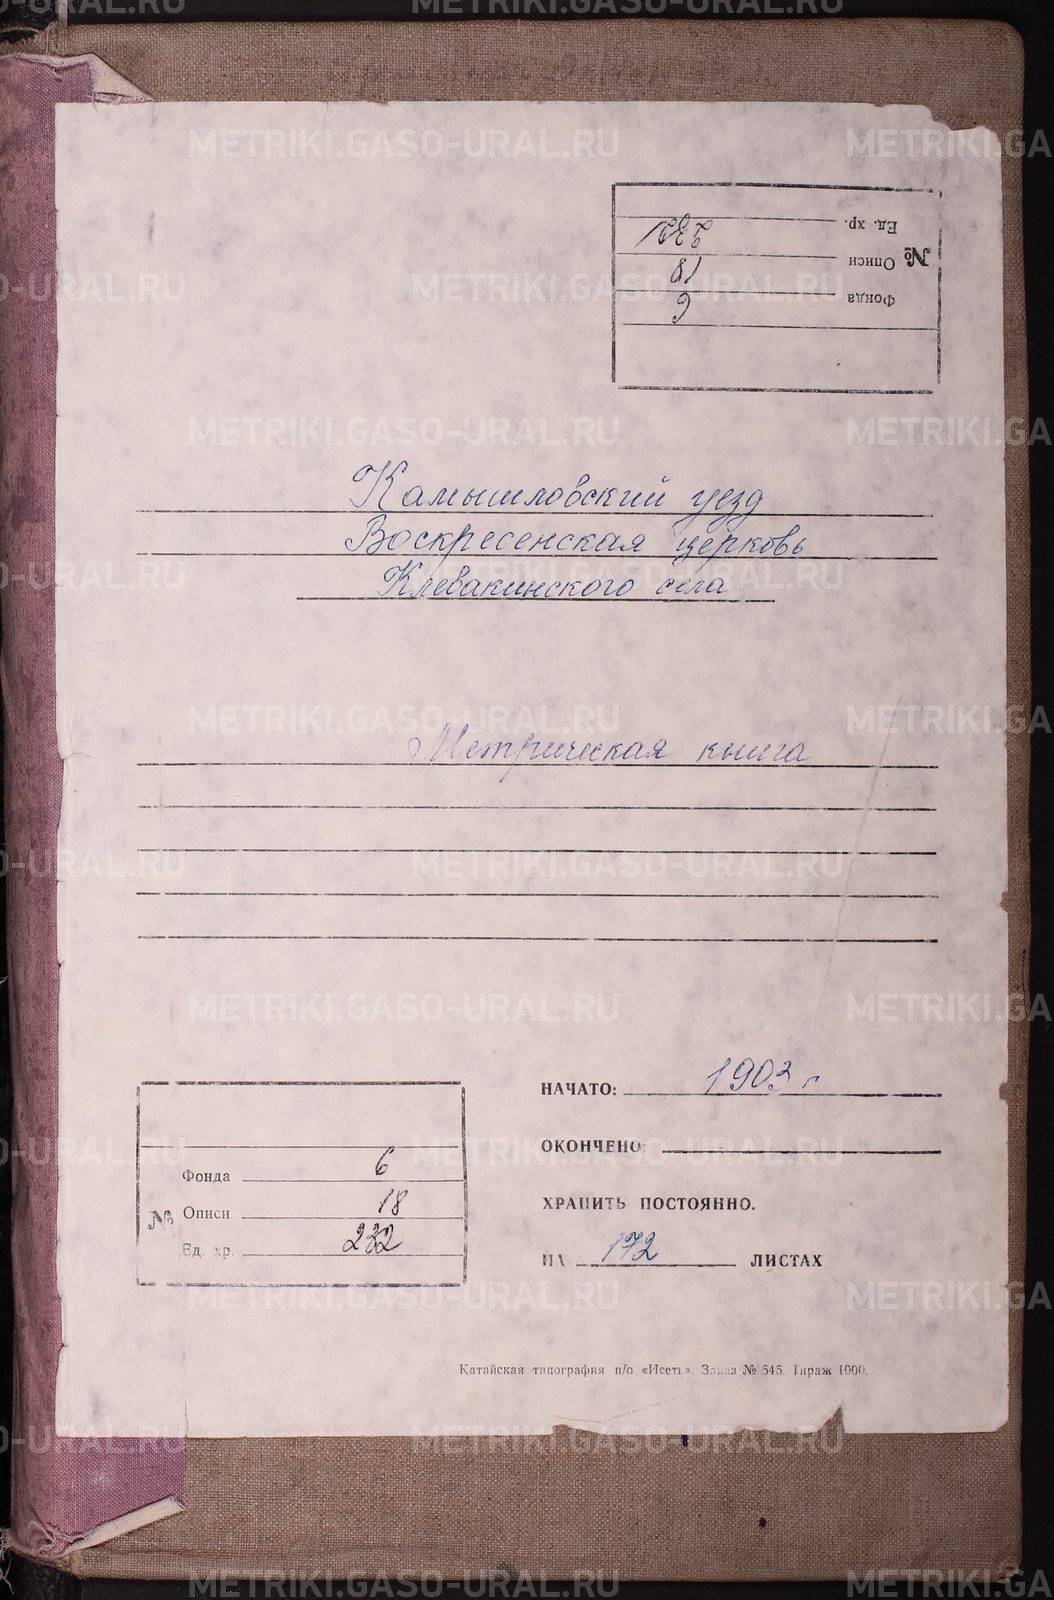 METRIKI.GASO-URAL.RU
Ед. хр. 232
№ Описи 18
Фонда 6
Камышловский уезд
Воскресенская церковь
Клевакинского села
Метрическая книга
НАЧАТО: 1903 г
ОКОНЧЕНО
ХРАНИТЬ ПОСТОЯННО.
НА 172 ЛИСТАХ
Фонда 6
№ Описи 18
Ед. хр. 232
Катайская типография п/о «Исеть». Заказ № 545. Тираж 1000.